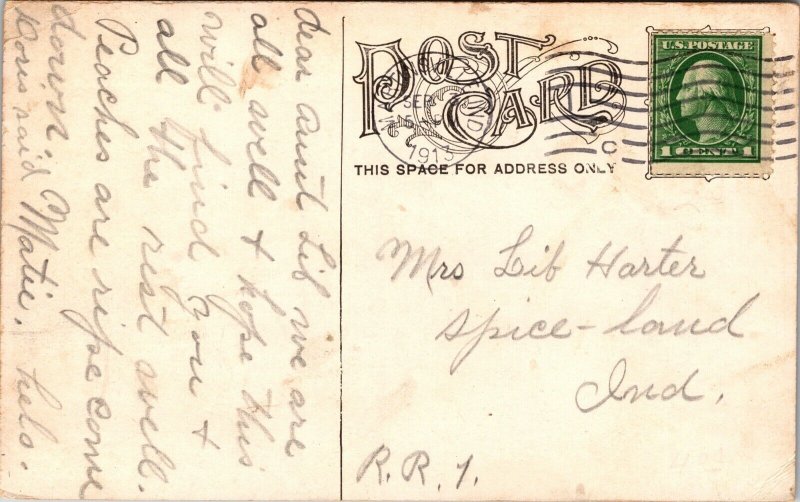 dear aunt Lib we are
all well & hope this
will find you &
all the rest well.
Peaches are ripe come
down.
said Matie.
POST CARD
SEP
1913
THIS SPACE FOR ADDRESS ONLY
U.S. POSTAGE
1 CENT 1
C
Mrs Lib Harter
Spice-land
Ind.
R.R.1.